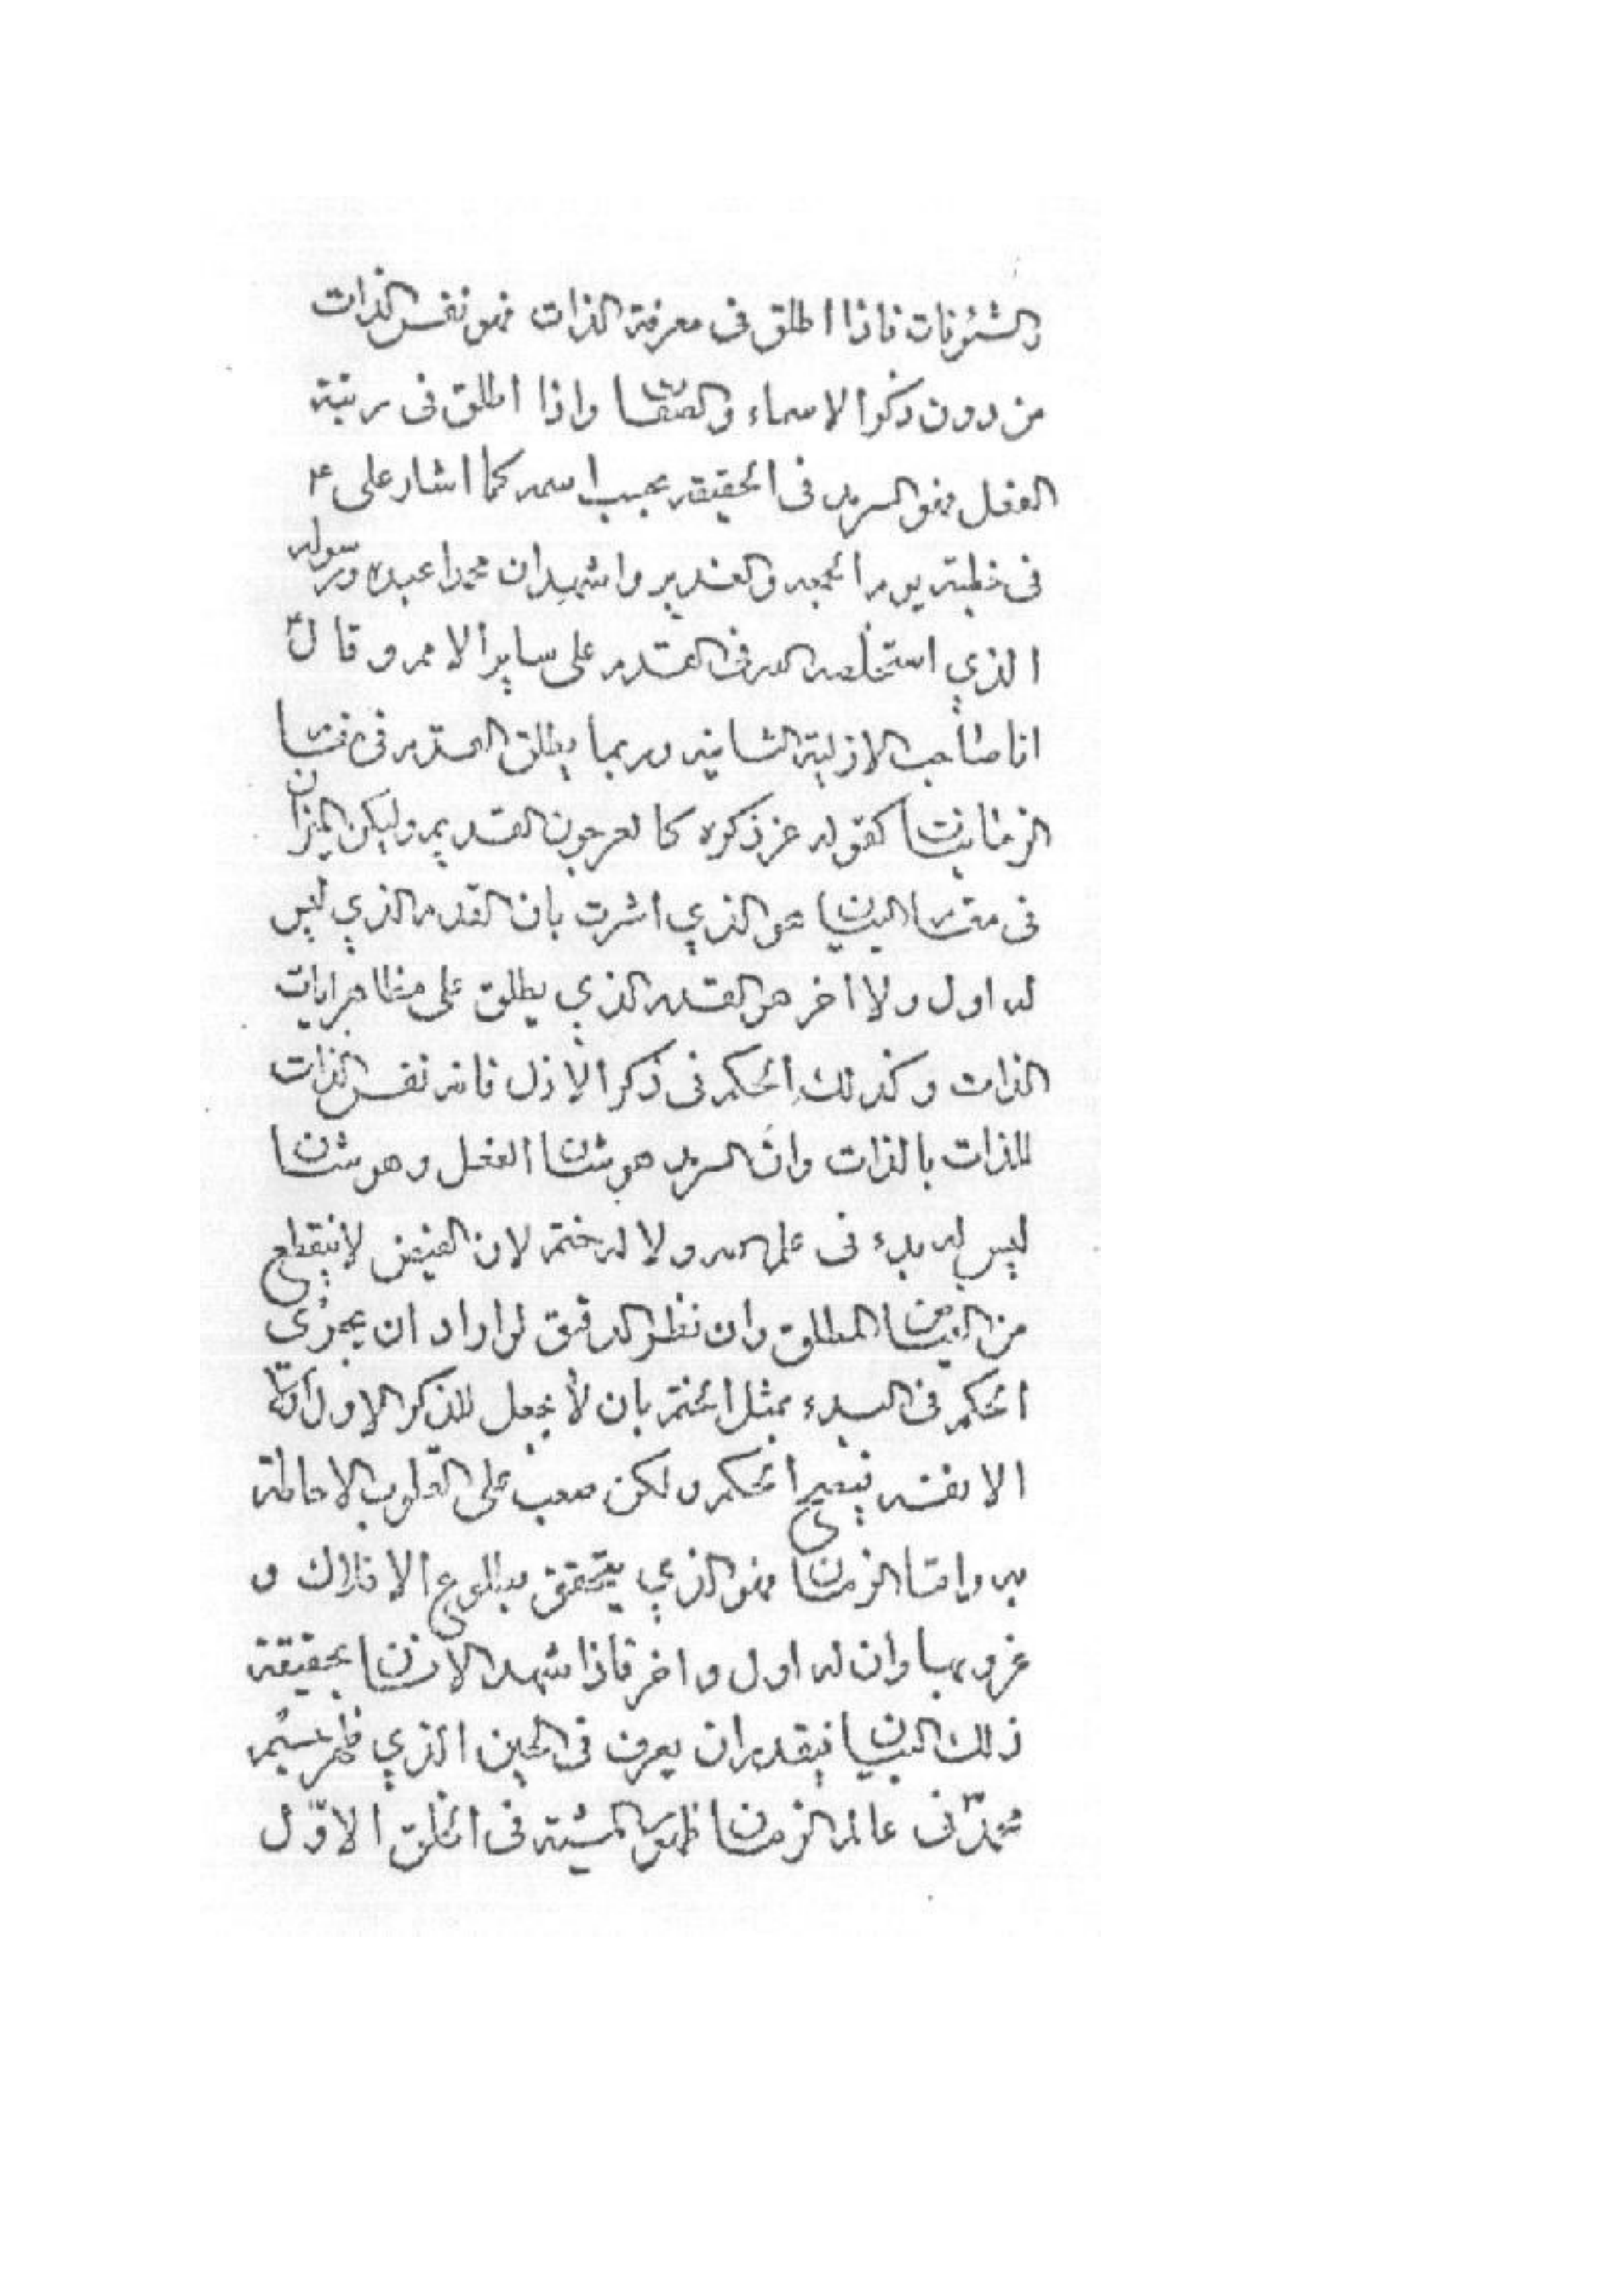 والشئونات فاذا اطلق فى معرفة الذات فهو نفس الذات
من دون ذكر الاسماء والصفات واذا اطلق فى رتبة
الفعل فهو السرمد فى الحقيقه بحسب اسمه كما اشار على ع
فى خطبته يوم الجمعه والغدير واشهد ان محمدا عبده ورسوله
الذي استخلصه الله فى القدم على ساير الامم وقال
انا صاحب الازلية الثانيه وربما يطلق القدم فى مقامات
الزمانيات كقوله عز ذكره كالعرجون القديم وليكن الميزان
فى مقام البيان هو الذي اشرت بان القدم الذي ليس
له اول ولا اخر هو القدم الذي يطلق على مظاهر ايات
الذات وكذلك الحكم فى ذكر الازل فانه نفس الذات
للذات بالذات وان السرمد هو شان الفعل وهو شان
ليس له بدء فى علم الله ولا له ختم لان الفيض لا ينقطع
من الفياض المطلق وان نظر الدقيق لو اراد ان يجرى
الحكم فى البدء بمثل الختم بان لا يجعل للذكر الاول اولا
الا نفسه فيصح الحكم ولكن صعب على القلوب الاحاطة
به واما الزمان فهو الذي يتحقق بطلوع الافلاك و
غروبها وان له اول واخر فاذا شهد الانسان بحقيقة
ذلك البيان فيقدر ان يعرف فى الحين الذي ظهر جسم
محمد ص فى عالم الزمان ظهور المشية فى الخلق الاول